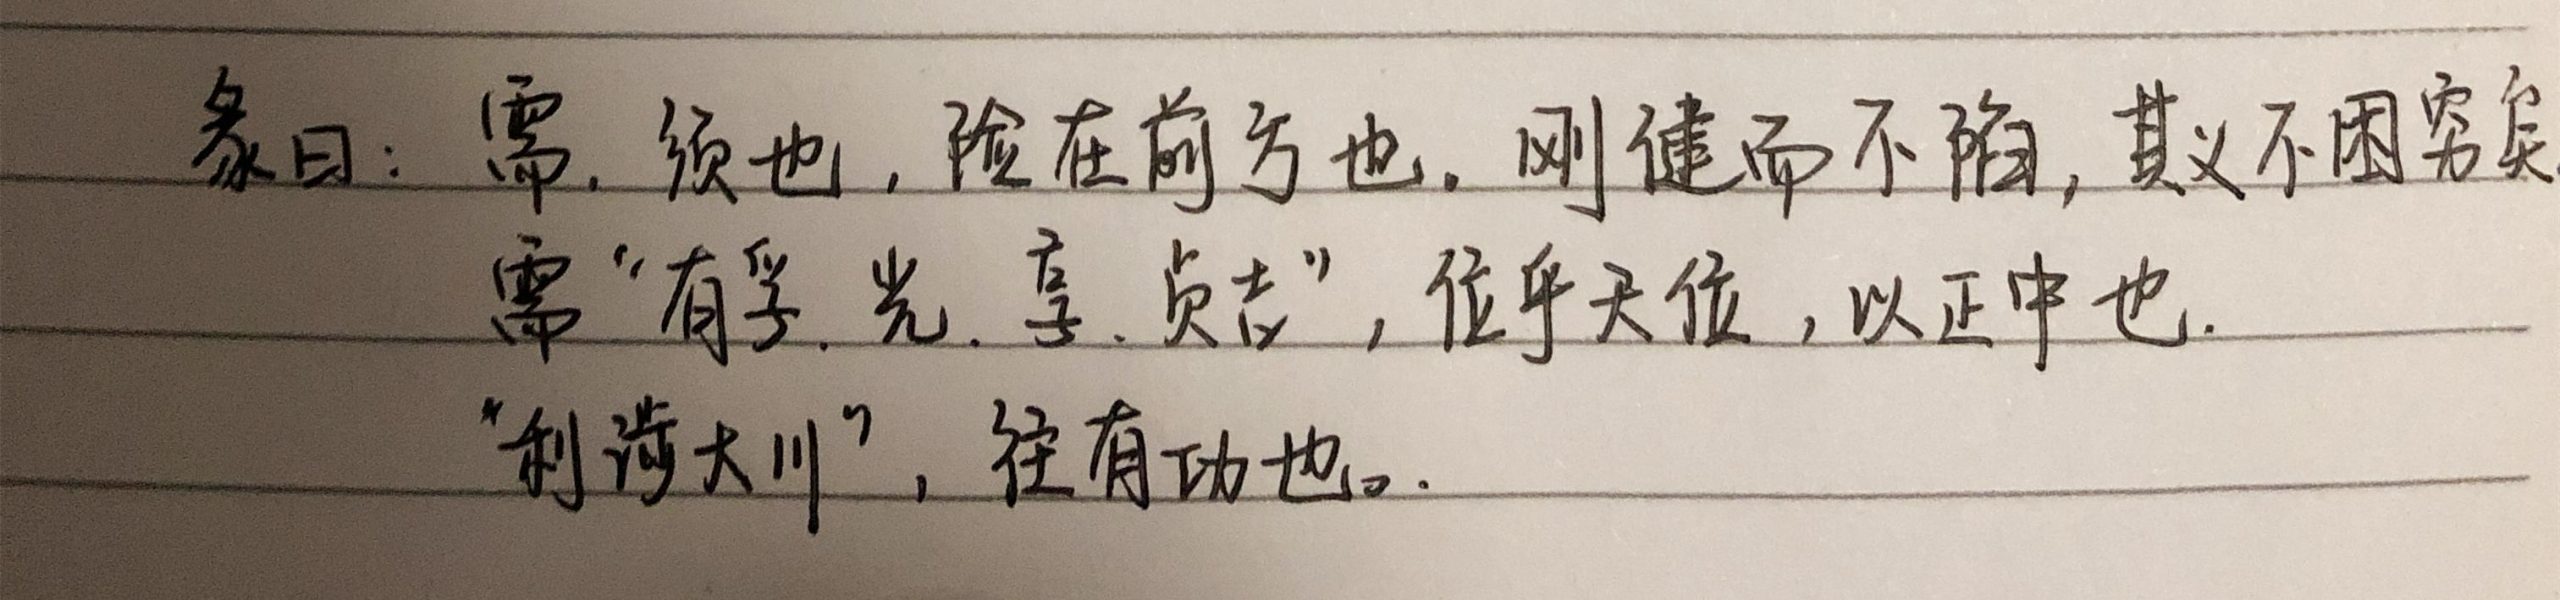 彖曰：需.须也，险在前方也.刚健而不陷，其义不困穷矣.
需“有孚.光.享.贞吉”，位乎天位，以正中也.
“利涉大川”，往有功也。.